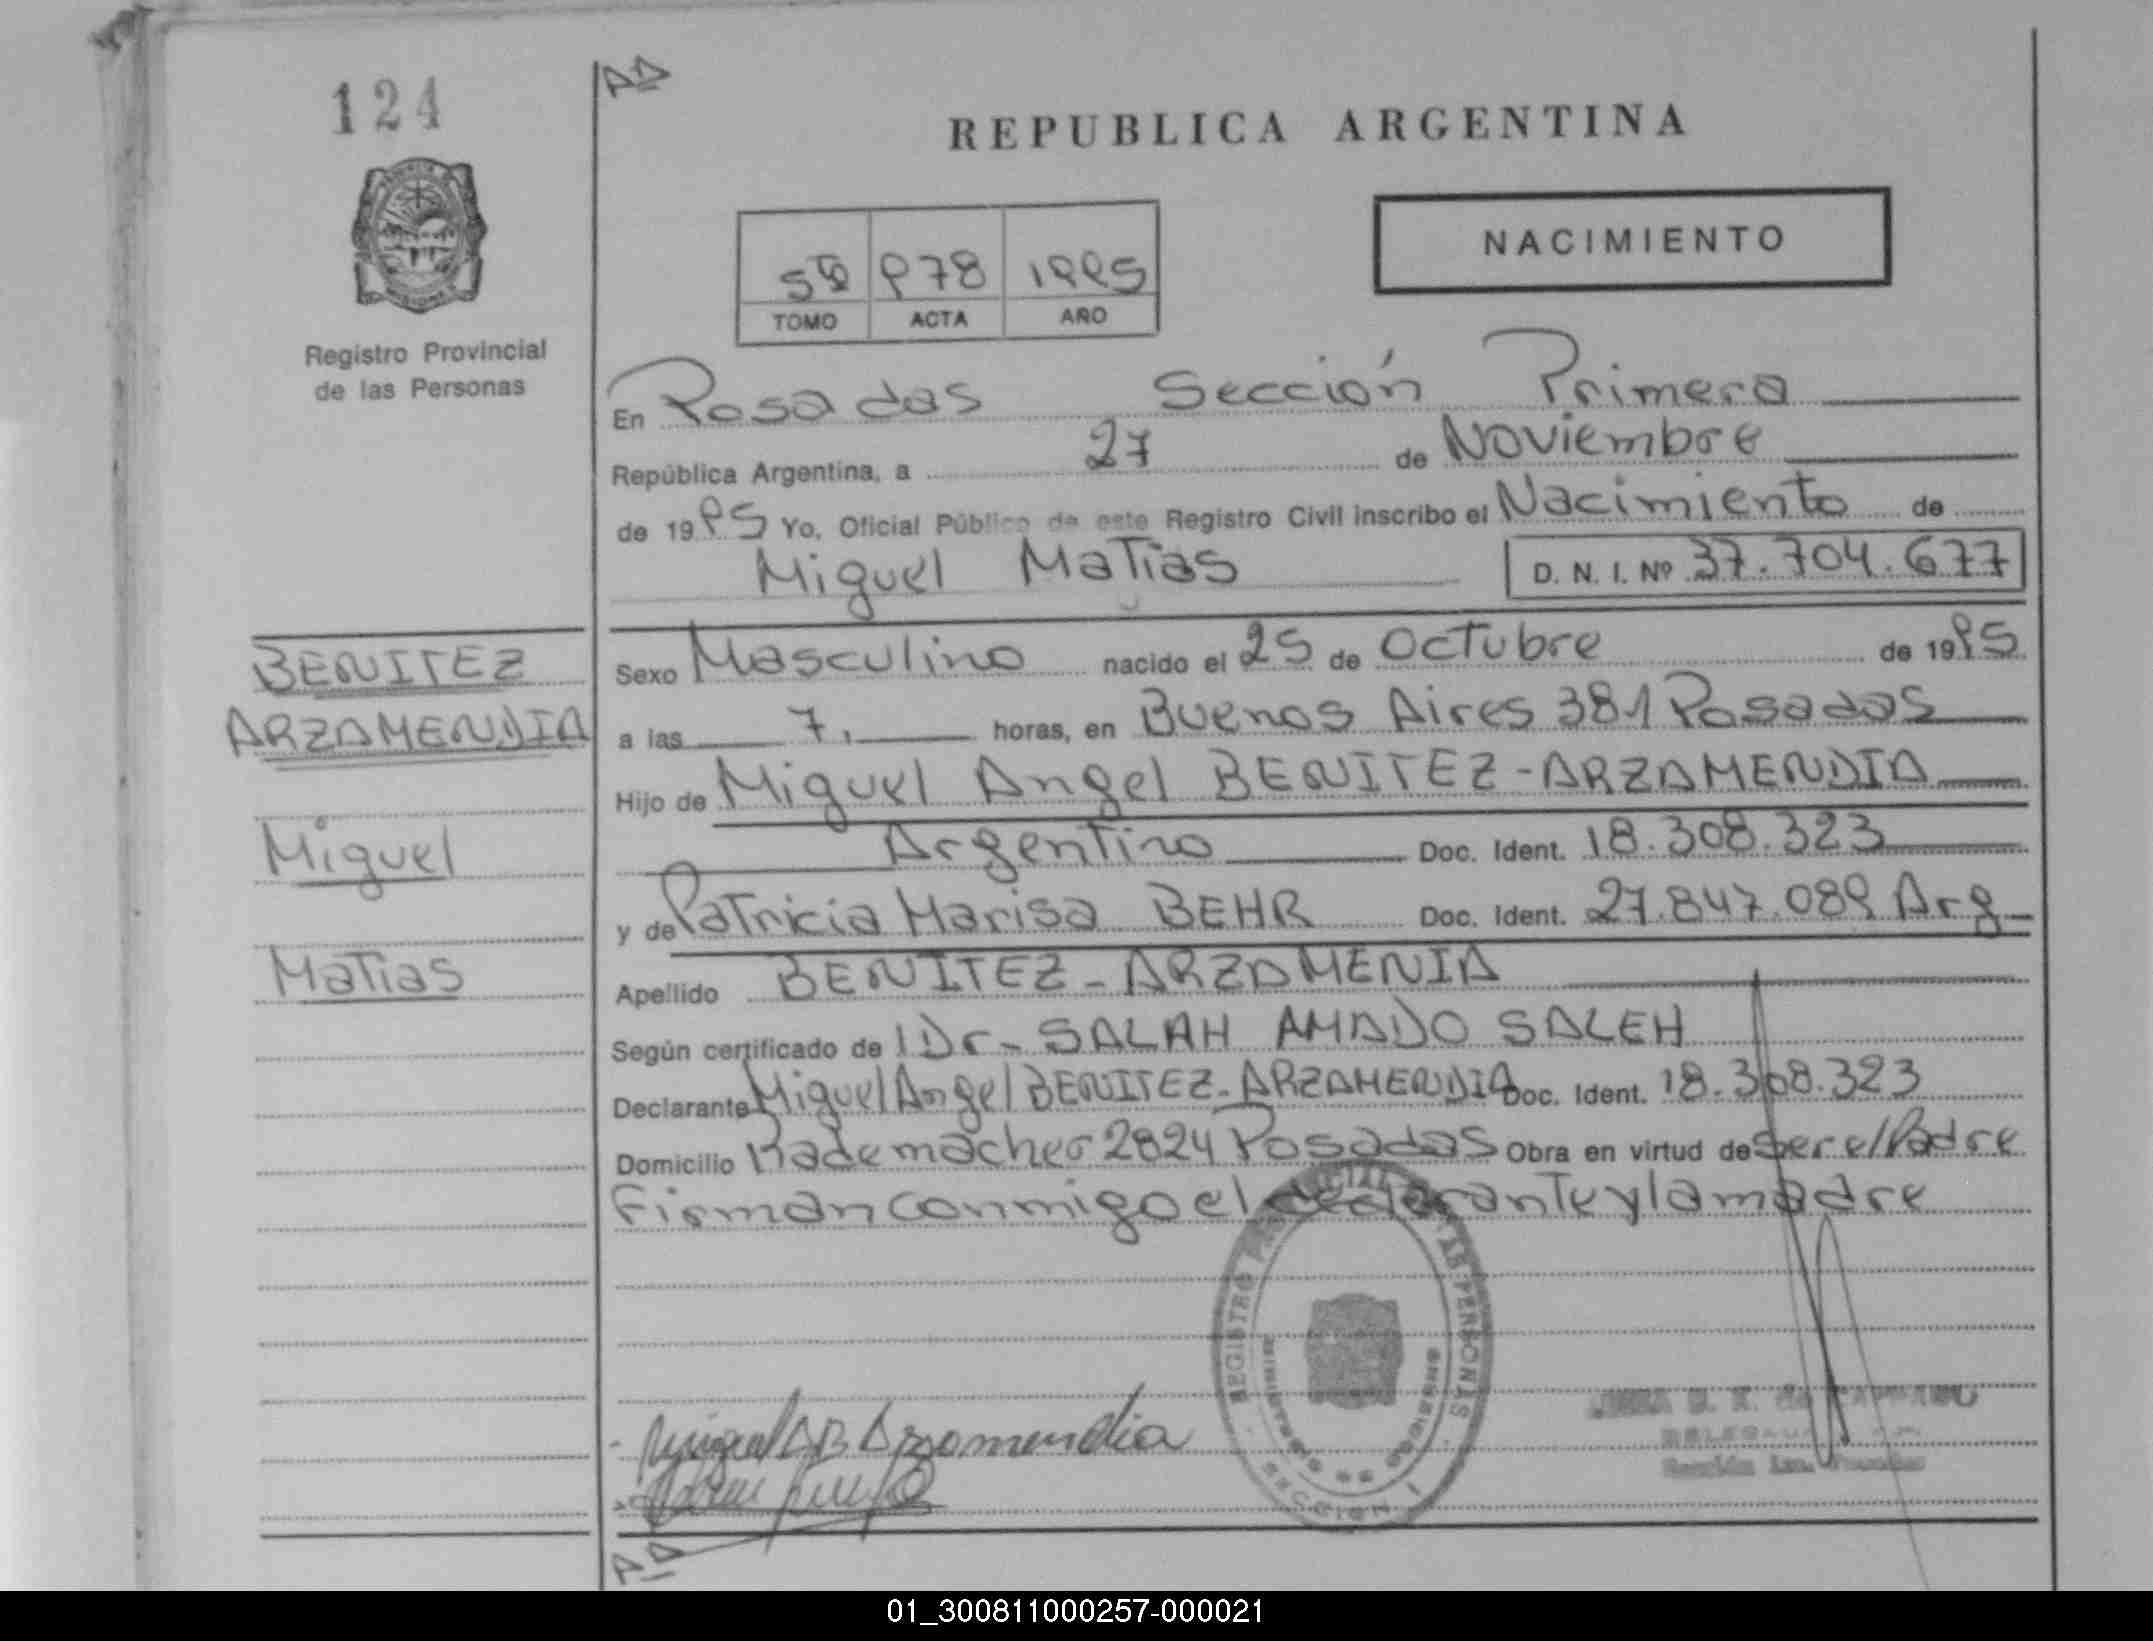 124
REPUBLICA ARGENTINA
Registro Provincial
de las Personas
5º 978 1995
TOMO ACTA AÑO
NACIMIENTO
En Posadas Sección Primera
República Argentina, a 27 de Noviembre
de 1995 Yo, Oficial Público de este Registro Civil inscribo el Nacimiento de
Miguel Matias D. N. I. Nº 37.704.677
BENITEZ
ARZAMENDIA
Miguel
Matias
Sexo Masculino nacido el 25 de Octubre de 1995
a las 7, horas, en Buenos Aires 381 Posadas
Hijo de Miguel Angel BENITEZ-ARZAMENDIA
Argentino Doc. Ident. 18.308.323
y de Patricia Marisa BEHR Doc. Ident. 27.847.089 Arg
Apellido BENITEZ-ARZAMENIA
Según certificado de Dr- SALAH AMADO SALEH
Declarante Miguel Angel BENITEZ-ARZAMENDIA Doc. Ident. 18.308.323
Domicilio Rademacher 2824 Posadas Obra en virtud de ser el Padre
Firman conmigo el declarante y la madre
REGISTRO PROVINCIAL DE LAS PERSONAS
SECCION 1
Miguel A B Arzamendia
01_300811000257-000021